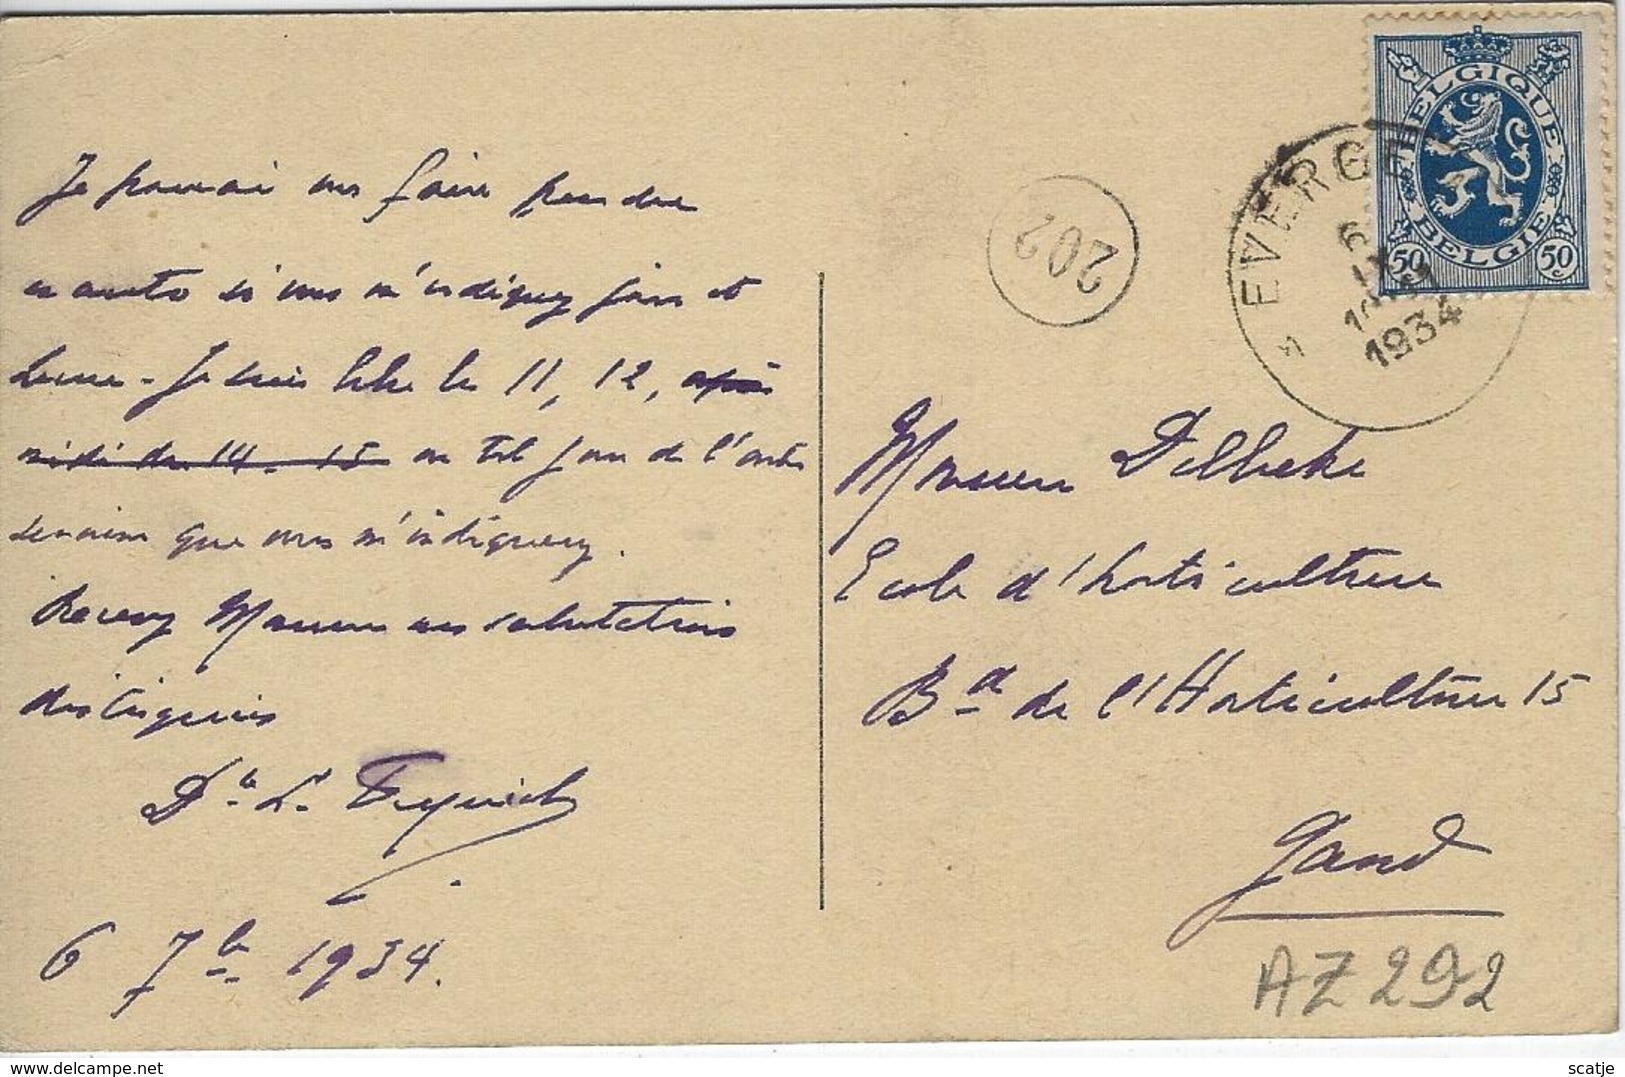 Je pourrai vous faire prendre
en auto si vous m'indiquez jour et
heure - Je suis libre les 11, 12, après
midi du 14. 15 ou tel jour de l'autre
semaine que vous m'indiquerez.
Recevez Monsieur mes salutations
distinguées
6 7bre 1934.
BELGIQUE
BELGIE
50 50
EVERGE
6
1934
202
Monsieur Dilbeke
Ecole d'horticulture
Bd de l'Horticulture 15
Gand
AZ 292
delcampe.net
scatje